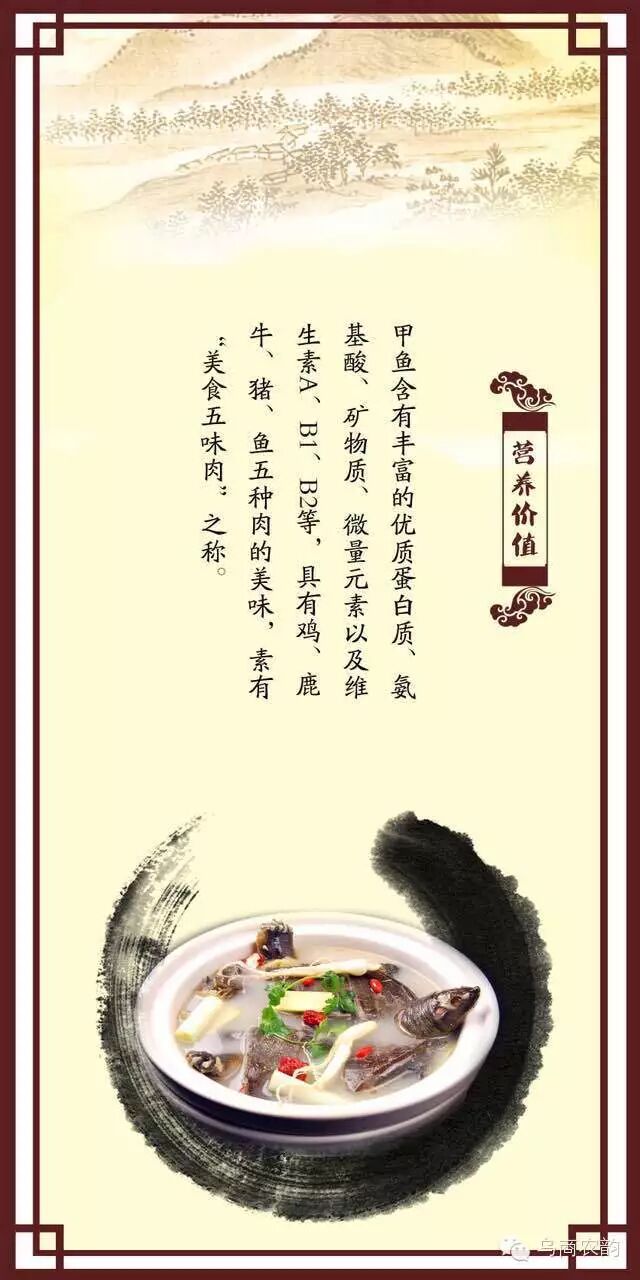 营养价值
甲鱼含有丰富的优质蛋白质、氨
基酸、矿物质、微量元素以及维
生素A、B1、B2等，具有鸡、鹿
牛、猪、鱼五种肉的美味，素有
“美食五味肉”之称。
乌商农韵